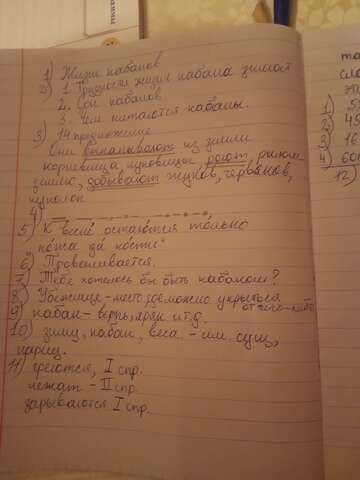 1) Жизнь кабанов
2) 1. Трудности жизни кабана зимой
2. Сон кабанов
3. Чем питаются кабаны.
3) 14 предложение
Они выкапывают из земли
корневища, луковицы, роют рылом
землю, добывают жуков, червяков,
куколок
4)
5) К весне остаются только
кожа да кости"
6) Проваливается.
7) Тебе хотелось бы быть кабаном?
8) Убежище - место где можно укрыться
от чего-либо
9) кабан - вепрь, хряк и т.д.
10) зиму, кабан, весна - им. сущ,
нариц.
11) греются, I спр.
лежат - II спр.
зарываются I спр.
1)
2) 45
3) 16
4)
12)